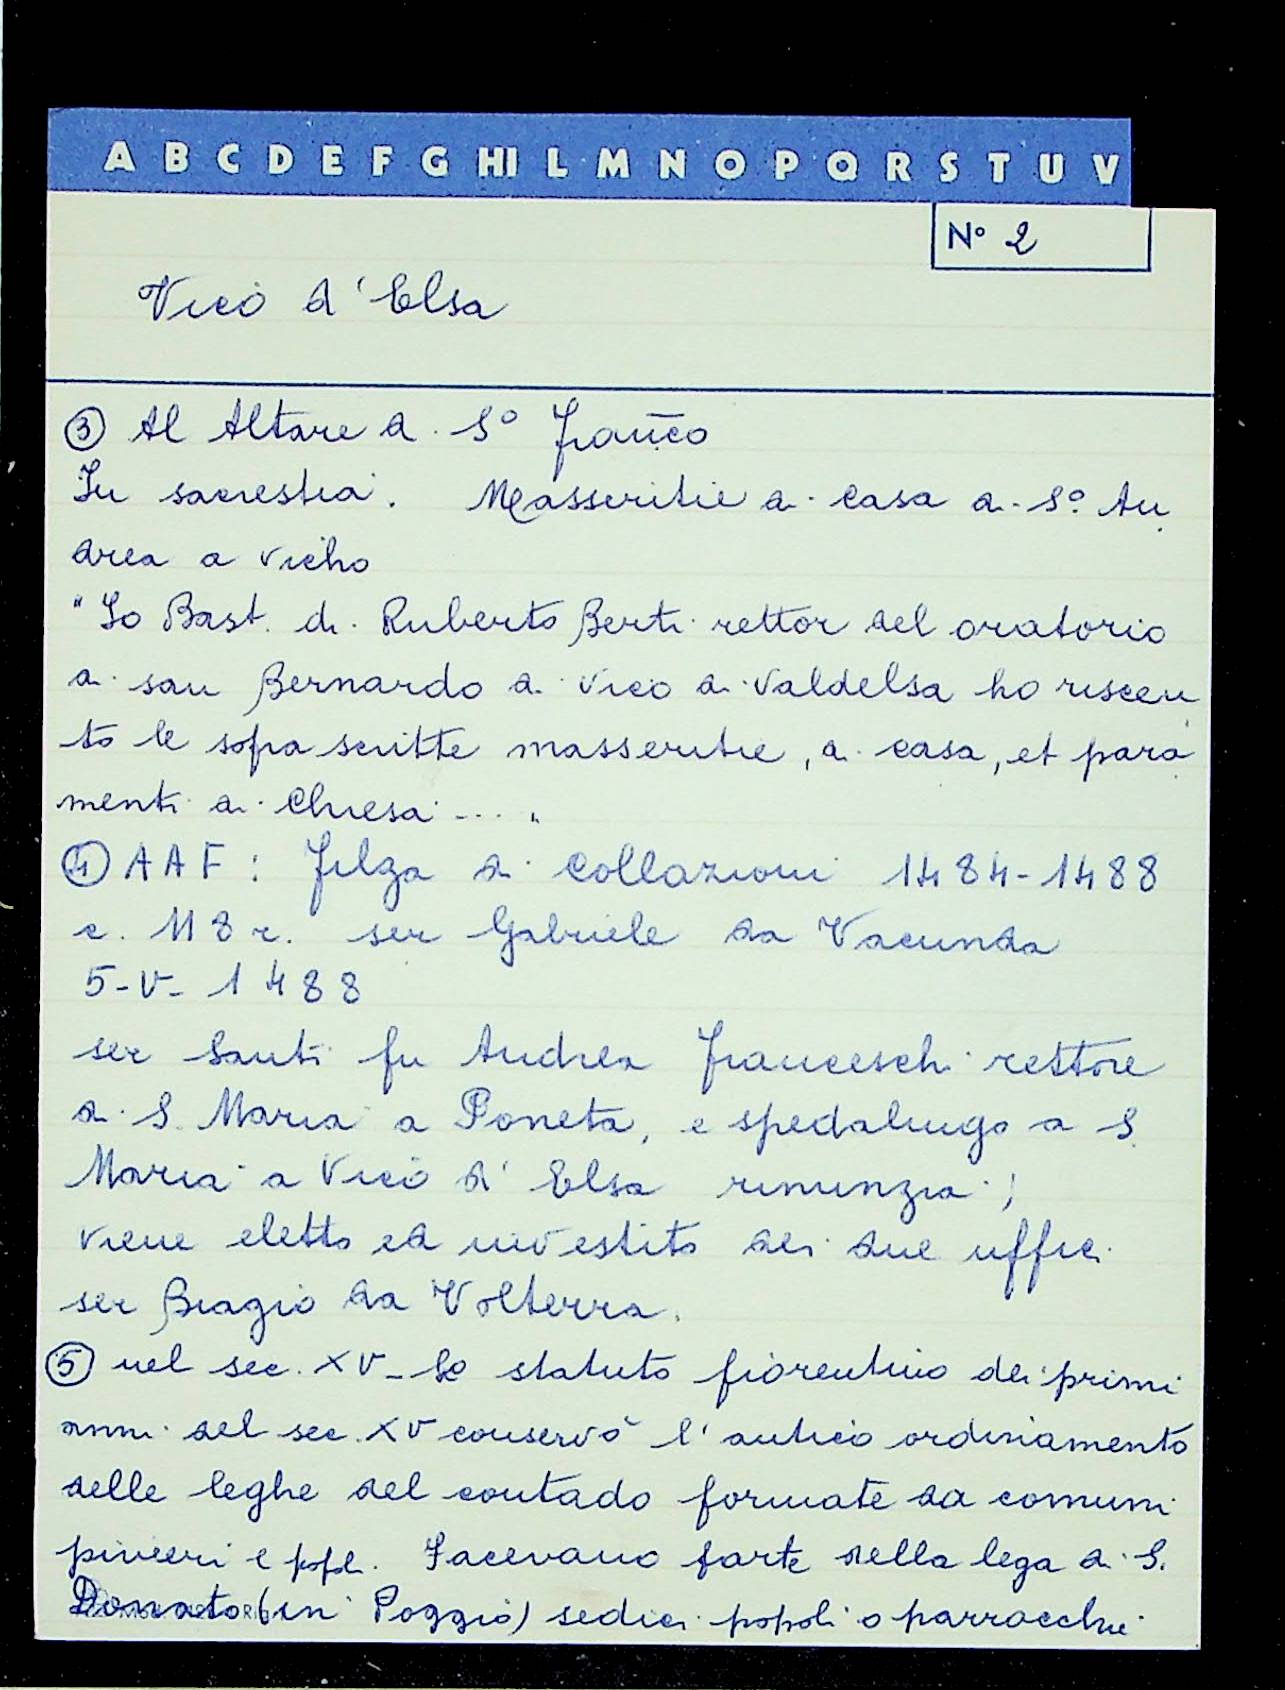 A B C D E F G HI L M N O P Q R S T U V
N° 2
Vico d'Elsa
③ Al Altare di S° Franc̄o
In sacrestia. Masseritie di casa di S° An
drea a vicho
"Io Bast. di Ruberto Berti rettor del oratorio
di san Bernardo di vico di valdelsa ho risceu
to le sopra scritte masseritie, di casa, et para
menti di Chiesa .... "
④ AAF: filza di Collazioni 1484-1488
c. 118 r. ser Gabriele da Vacunda
5-V-1488
ser Santi fu Andrea Franceschi rettore
di S. Maria a Poneta, e spedalingo a S.
Maria a Vico d'Elsa rinunzia;
viene eletto ed investito dei due uffici
ser Biagio da Volterra.
⑤ nel sec. XV - Lo statuto fiorentino dei primi
anni del sec. XV conservò l'antico ordinamento
delle leghe del contado formate da comuni
pivieri e popoli. Facevano parte della lega di S.
Donato (in Poggio) sedici popoli o parrocchie